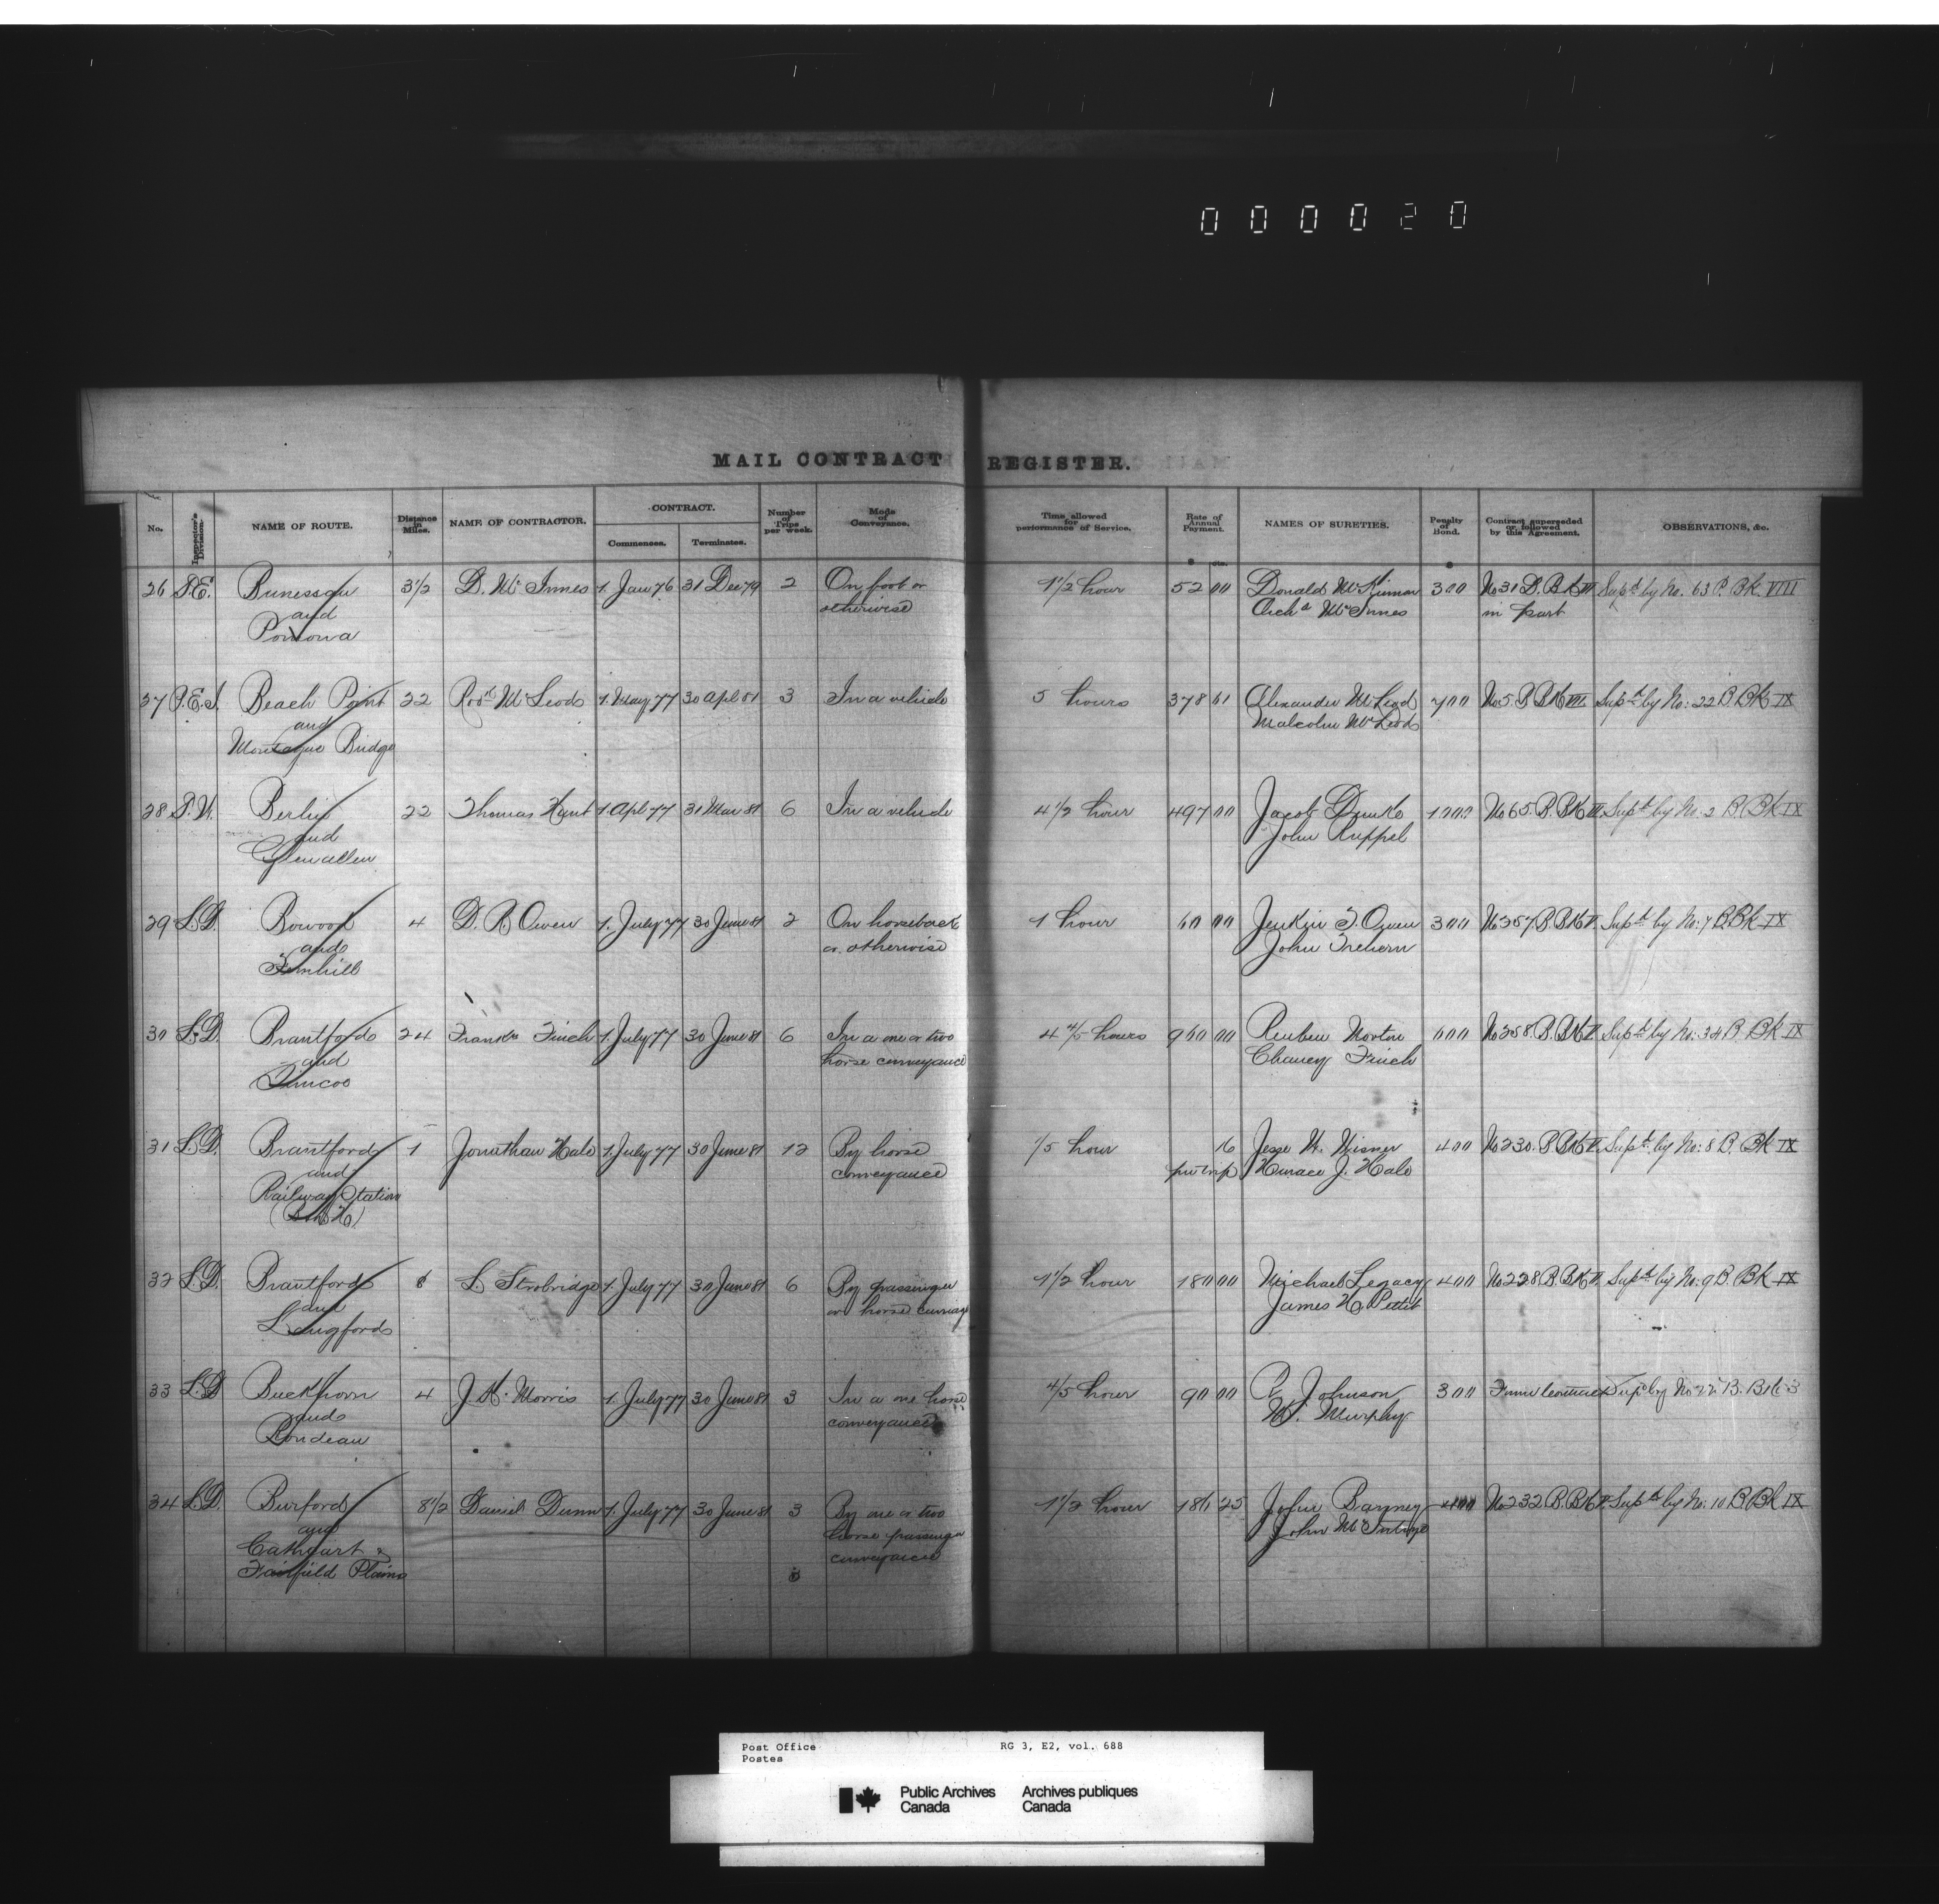 0 0 0 0 2 0
MAIL CONTRACT REGISTER.
No. Inspector's Division. NAME OF ROUTE. Distance in Miles. NAME OF CONTRACTOR. CONTRACT. Commences. Terminates. Number of Trips per week. Mode of Conveyance. Time allowed for performance of Service. Rate of Annual Payment. NAMES OF SURETIES. Penalty of Bond. Contract superseded or followed by this Agreement. OBSERVATIONS, &c.
$ cts. $
26 Bunessan 3 1/2 D. Mc Innes 1. Jan 76 31 Dec 79 2 On foot or 1 1/2 hour 52 00 Donald McKinnon 300 No 31 Supd by No. 63 P. BK. VIII
and otherwise Archd McInnes in part
Pomona
27 P.E.I. Beach Point 22 Rodk McLeod 1. May 77 30 Apl 81 3 In a vehicle 5 hours 378 61 Alexander McLeod 700 No 5 Supd by No: 22 B BK IX
and Malcolm McLeod
Montague Bridge
28 Berlin 22 Thomas Hunt 1. Apl 77 31 Mar 81 6 In a vehicle 4 1/2 hour 497 00 Jacob 1000 No 65 Supd by No: 2 B BK IX
and John Ruppel
Glenallen
29 L.D. Bowood 4 D. R. Owen 1. July 77 30 June 81 2 On horseback 1 hour 60 00 Jenkin T. Owen 300 No 357 Supd by No: 7 B BK IX
and or otherwise John Trehern
Fernhill
30 L.D. Brantford 24 Francis Finch 1. July 77 30 June 81 6 In a one or two 4 4/5 hours 960 00 Reuben Morton 600 No 258 Supd by No: 34 B. BK IX
and horse conveyance Chancy Finch
Simcoe
31 L.D. Brantford 1 Jonathan Hale 1. July 77 30 June 81 12 By horse 1/5 hour 16 Jesse W. Wisner 400 No 230 Supd by No: 8 B. BK IX
and conveyance per trip Horace J. Hale
Railway Station
32 L.D. Brantford 6 L. Strobridge 1. July 77 30 June 81 6 By passenger 1 1/2 hour 180 00 Michael Legacy 400 No 228 Supd by No: 9 B. BK IX
and or horse carriage James H. Pettit
Langford
33 L.D. Buckhorn 4 J. K. Morris 1. July 77 30 June 81 3 In a one horse 4/5 hour 90 00 P. Johnson 300 Supd by No B. BK
and conveyance W. Murphy
Rondeau
34 L.D. Burford 8 1/2 Daniel Dunn 1. July 77 30 June 81 3 By one or two 1 1/2 hour 186 25 John Barney 400 No 232 Supd by No: 10 B BK IX
and horse passenger John
Cathcart & conveyance
Fairfield Plains
Post Office RG 3, E2, vol. 688
Postes
Public Archives Archives publiques
Canada Canada